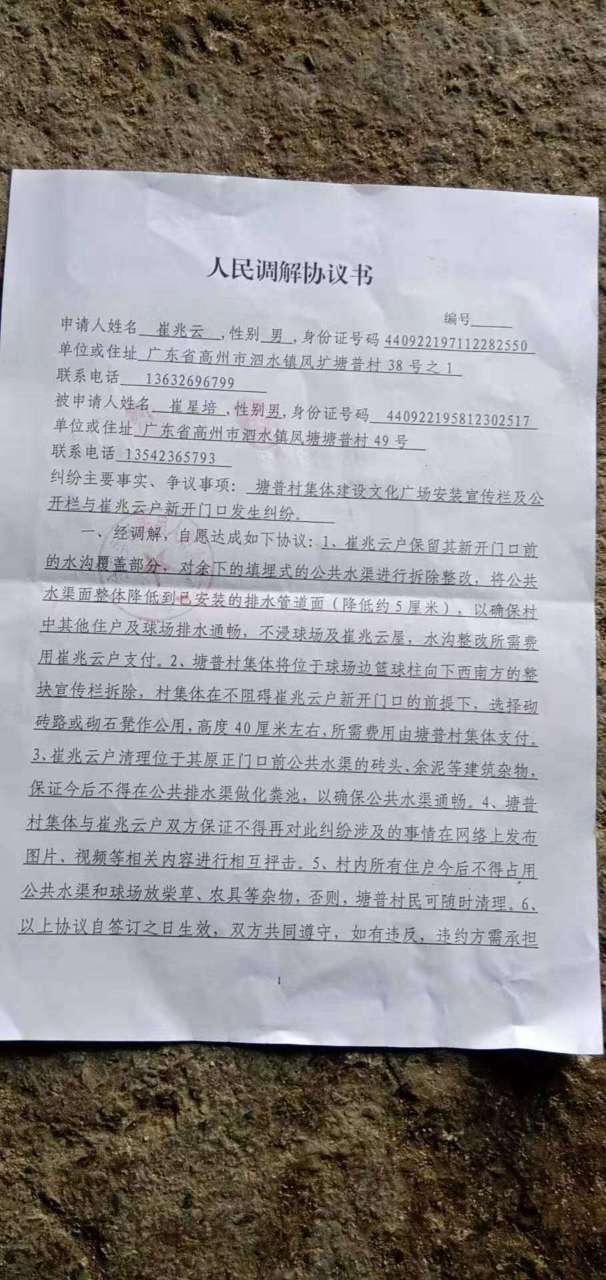 人民调解协议书
编号
申请人姓名 崔兆云 ,性别 男 ,身份证号码 440922197112282550
单位或住址 广东省高州市泗水镇凤圹塘普村 38 号之 1
联系电话 13632696799
被申请人姓名 崔星培 ,性别男,身份证号码 440922195812302517
单位或住址 广东省高州市泗水镇凤塘塘普村 49 号
联系电话 13542365793
纠纷主要事实、争议事项： 塘普村集体建设文化广场安装宣传栏及公
开栏与崔兆云户新开门口发生纠纷。
一、经调解，自愿达成如下协议：1、崔兆云户保留其新开门口前
的水沟覆盖部分，对余下的填埋式的公共水渠进行拆除整改，将公共
水渠面整体降低到已安装的排水管道面（降低约 5 厘米），以确保村
中其他住户及球场排水通畅，不浸球场及崔兆云屋，水沟整改所需费
用崔兆云户支付。2、塘普村集体将位于球场边篮球柱向下西南方的整
块宣传栏拆除，村集体在不阻碍崔兆云户新开门口的前提下，选择砌
砖路或砌石凳作公用，高度 40 厘米左右，所需费用由塘普村集体支付。
3、崔兆云户清理位于其原正门口前公共水渠的砖头、余泥等建筑杂物，
保证今后不得在公共排水渠做化粪池，以确保公共水渠通畅。4、塘普
村集体与崔兆云户双方保证不得再对此纠纷涉及的事情在网络上发布
图片、视频等相关内容进行相互抨击。5、村内所有住户今后不得占用
公共水渠和球场放柴草、农具等杂物，否则，塘普村民可随时清理。6、
以上协议自签订之日生效，双方共同遵守，如有违反，违约方需承担
1